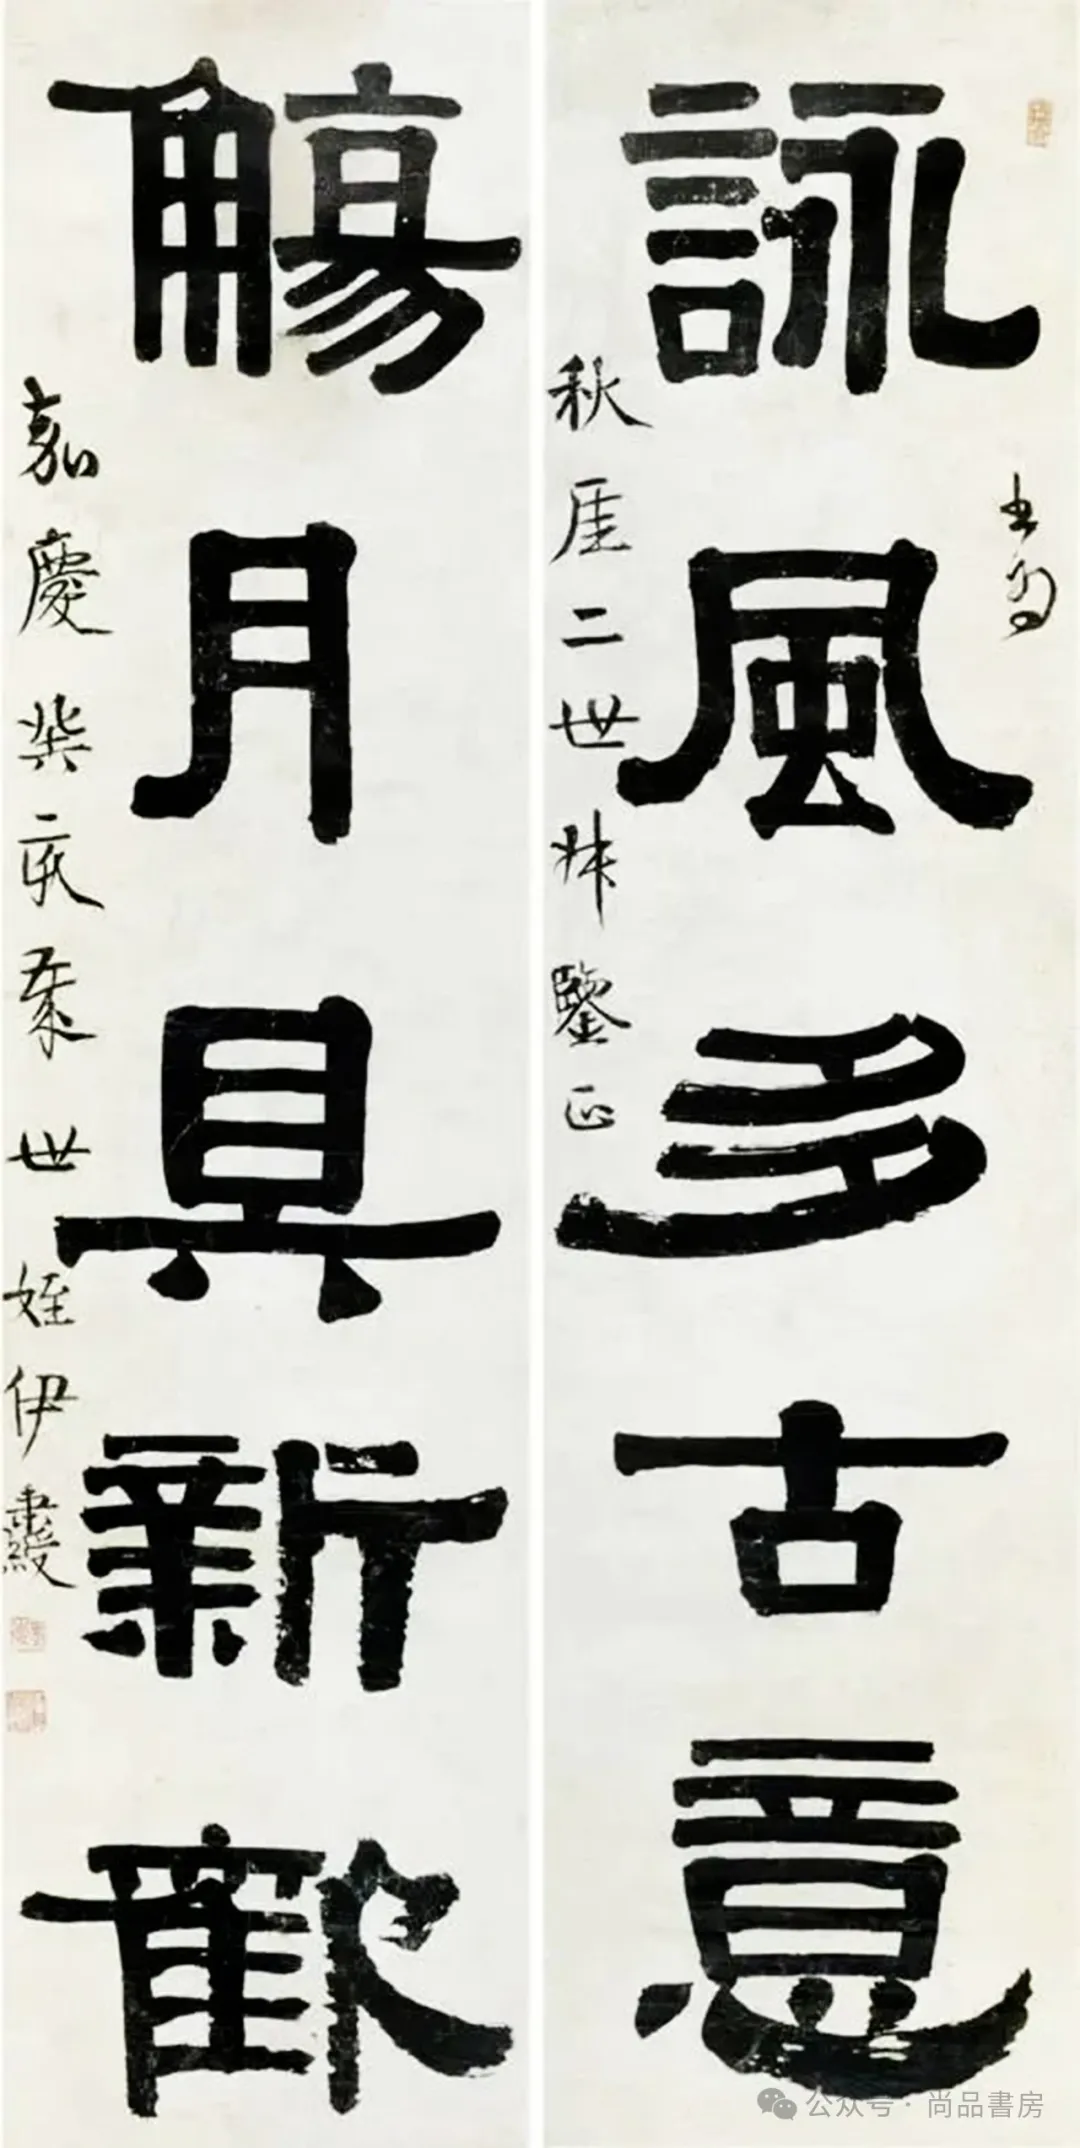 詠風多古意
書為
秋厓二世叔鑒正
觴月具新歡
嘉慶癸亥世姪伊秉綬
公众号 · 尚品書房